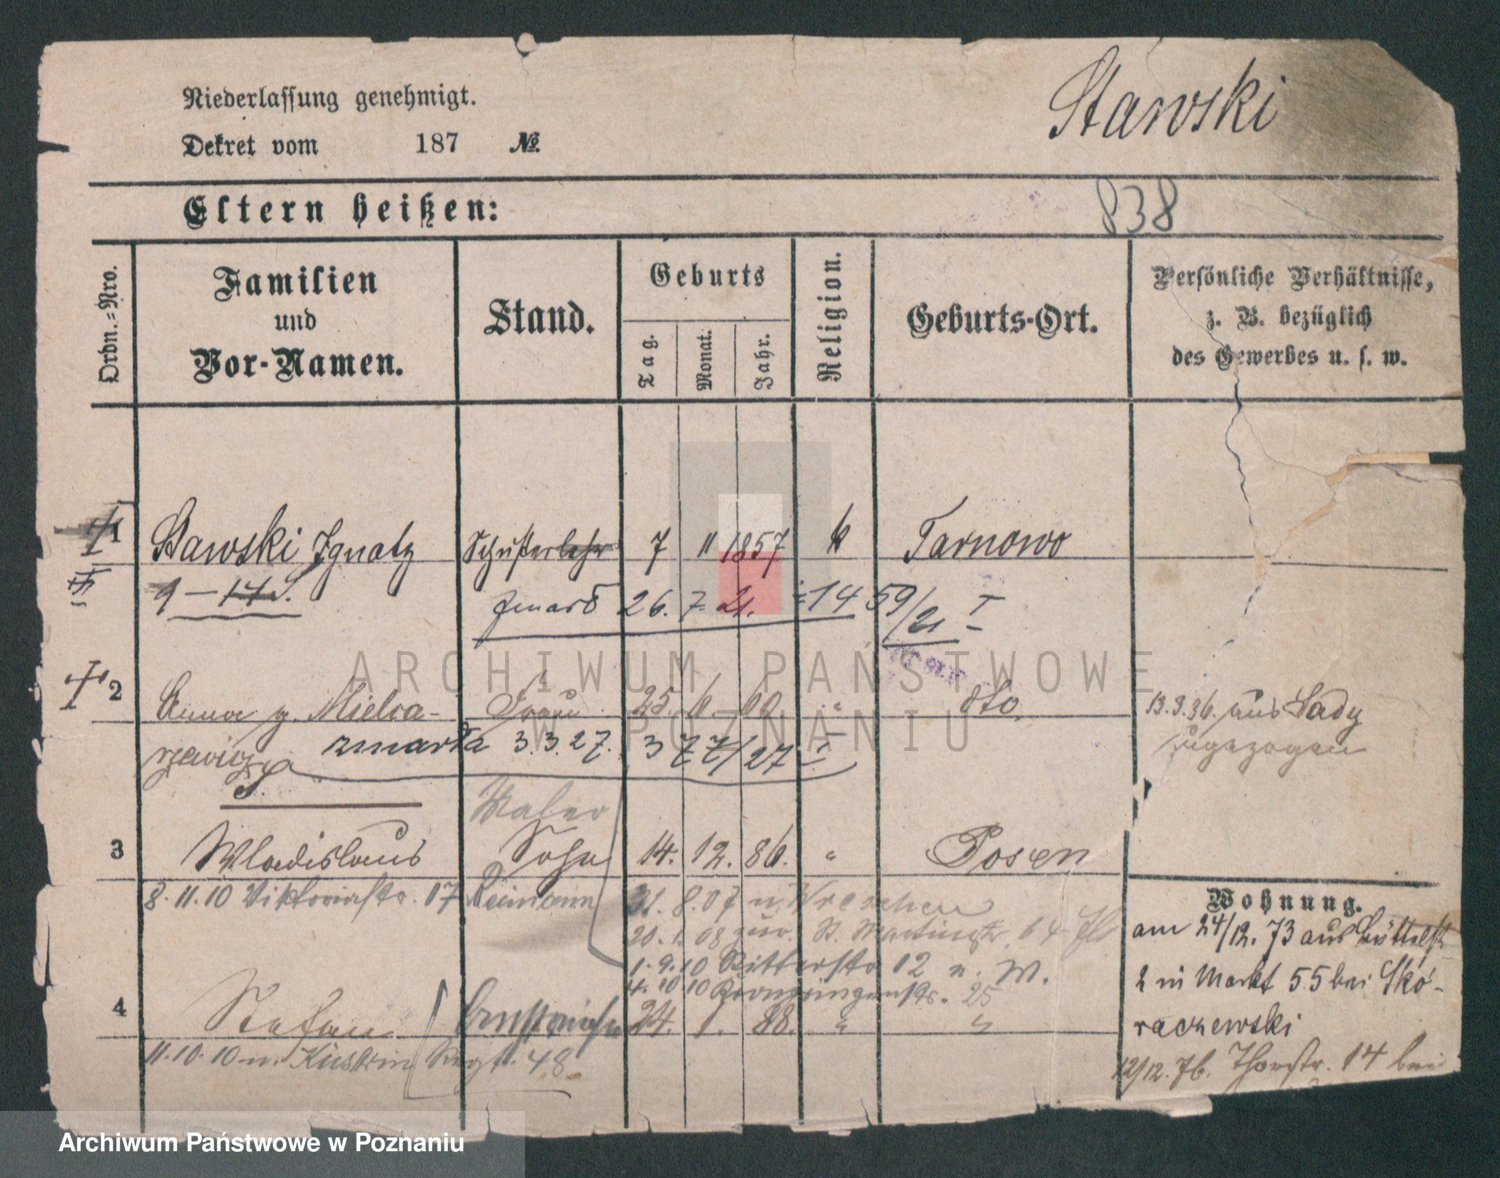 Niederlassung genehmigt.
Stawski
Dekret vom 187 №.
Eltern heißen:
838
Ordn.-Nro.
Familien und Vor-Namen.
Stand.
Geburts
Tag.
Monat.
Jahr.
Religion.
Geburts-Ort.
Persönliche Verhältnisse,
z. B. bezüglich
des Gewerbes u. s. w.
1 Stawski Ignatz Schusterlehr 7 11 1857 k Tarnowo
zmarł 26. 7. 21. 1459/21 I
ARCHIWUM PAŃSTWOWE
W POZNANIU
2 Anna g. Mielca- Frau 25. 6. 60. " dto.
13.3.36. aus
zugezogen
rzewicz zmarła 3.3.27. 377/27 I
Maler
3 Wladislaus Sohn 14. 12. 86. " Posen
8.11.10 Viktoriastr. 17 Reimann 21. 8. 07 n. Wreschen
Wohnung.
20. 1. 08 zur. St. Martinstr. 64
am 24/12. 73 aus
1. 9. 10 Ritterstr 12 n. W.
2 in Markt 55 bei Skó-
4. 10 10 25
4 Stefan 24. 1. 88. " "
raczewski
11.10.10 n. Küstrin 48
12/12. 76. Thorstr. 14 bei
Archiwum Państwowe w Poznaniu